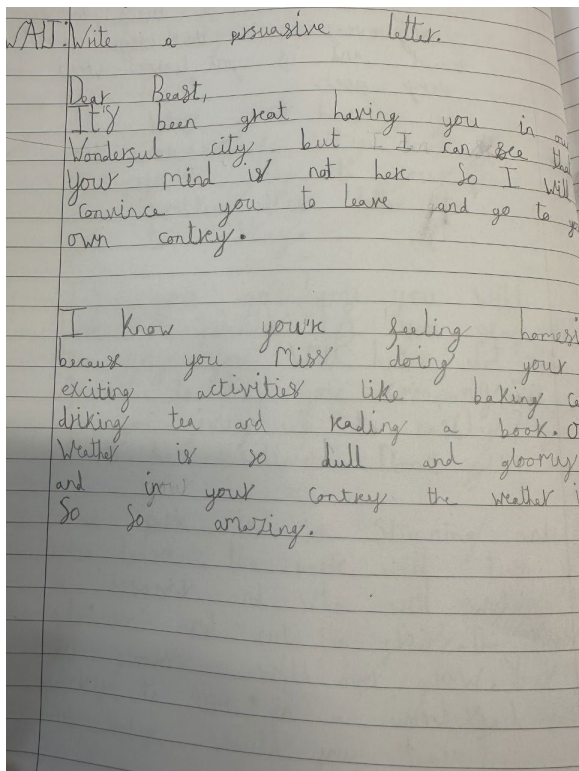 WALT: Write a persuasive letter.
Dear Beast,
It's been great having you in
Wonderful city but I can see
your mind is not here So I will
convince you to leave and go to
own contrey.
I know you're feeling
because you miss doing your
exciting activities like baking
driking tea and reading a book.
Weather is so dull and gloomy
and in your contrey the weather
So So amazing.